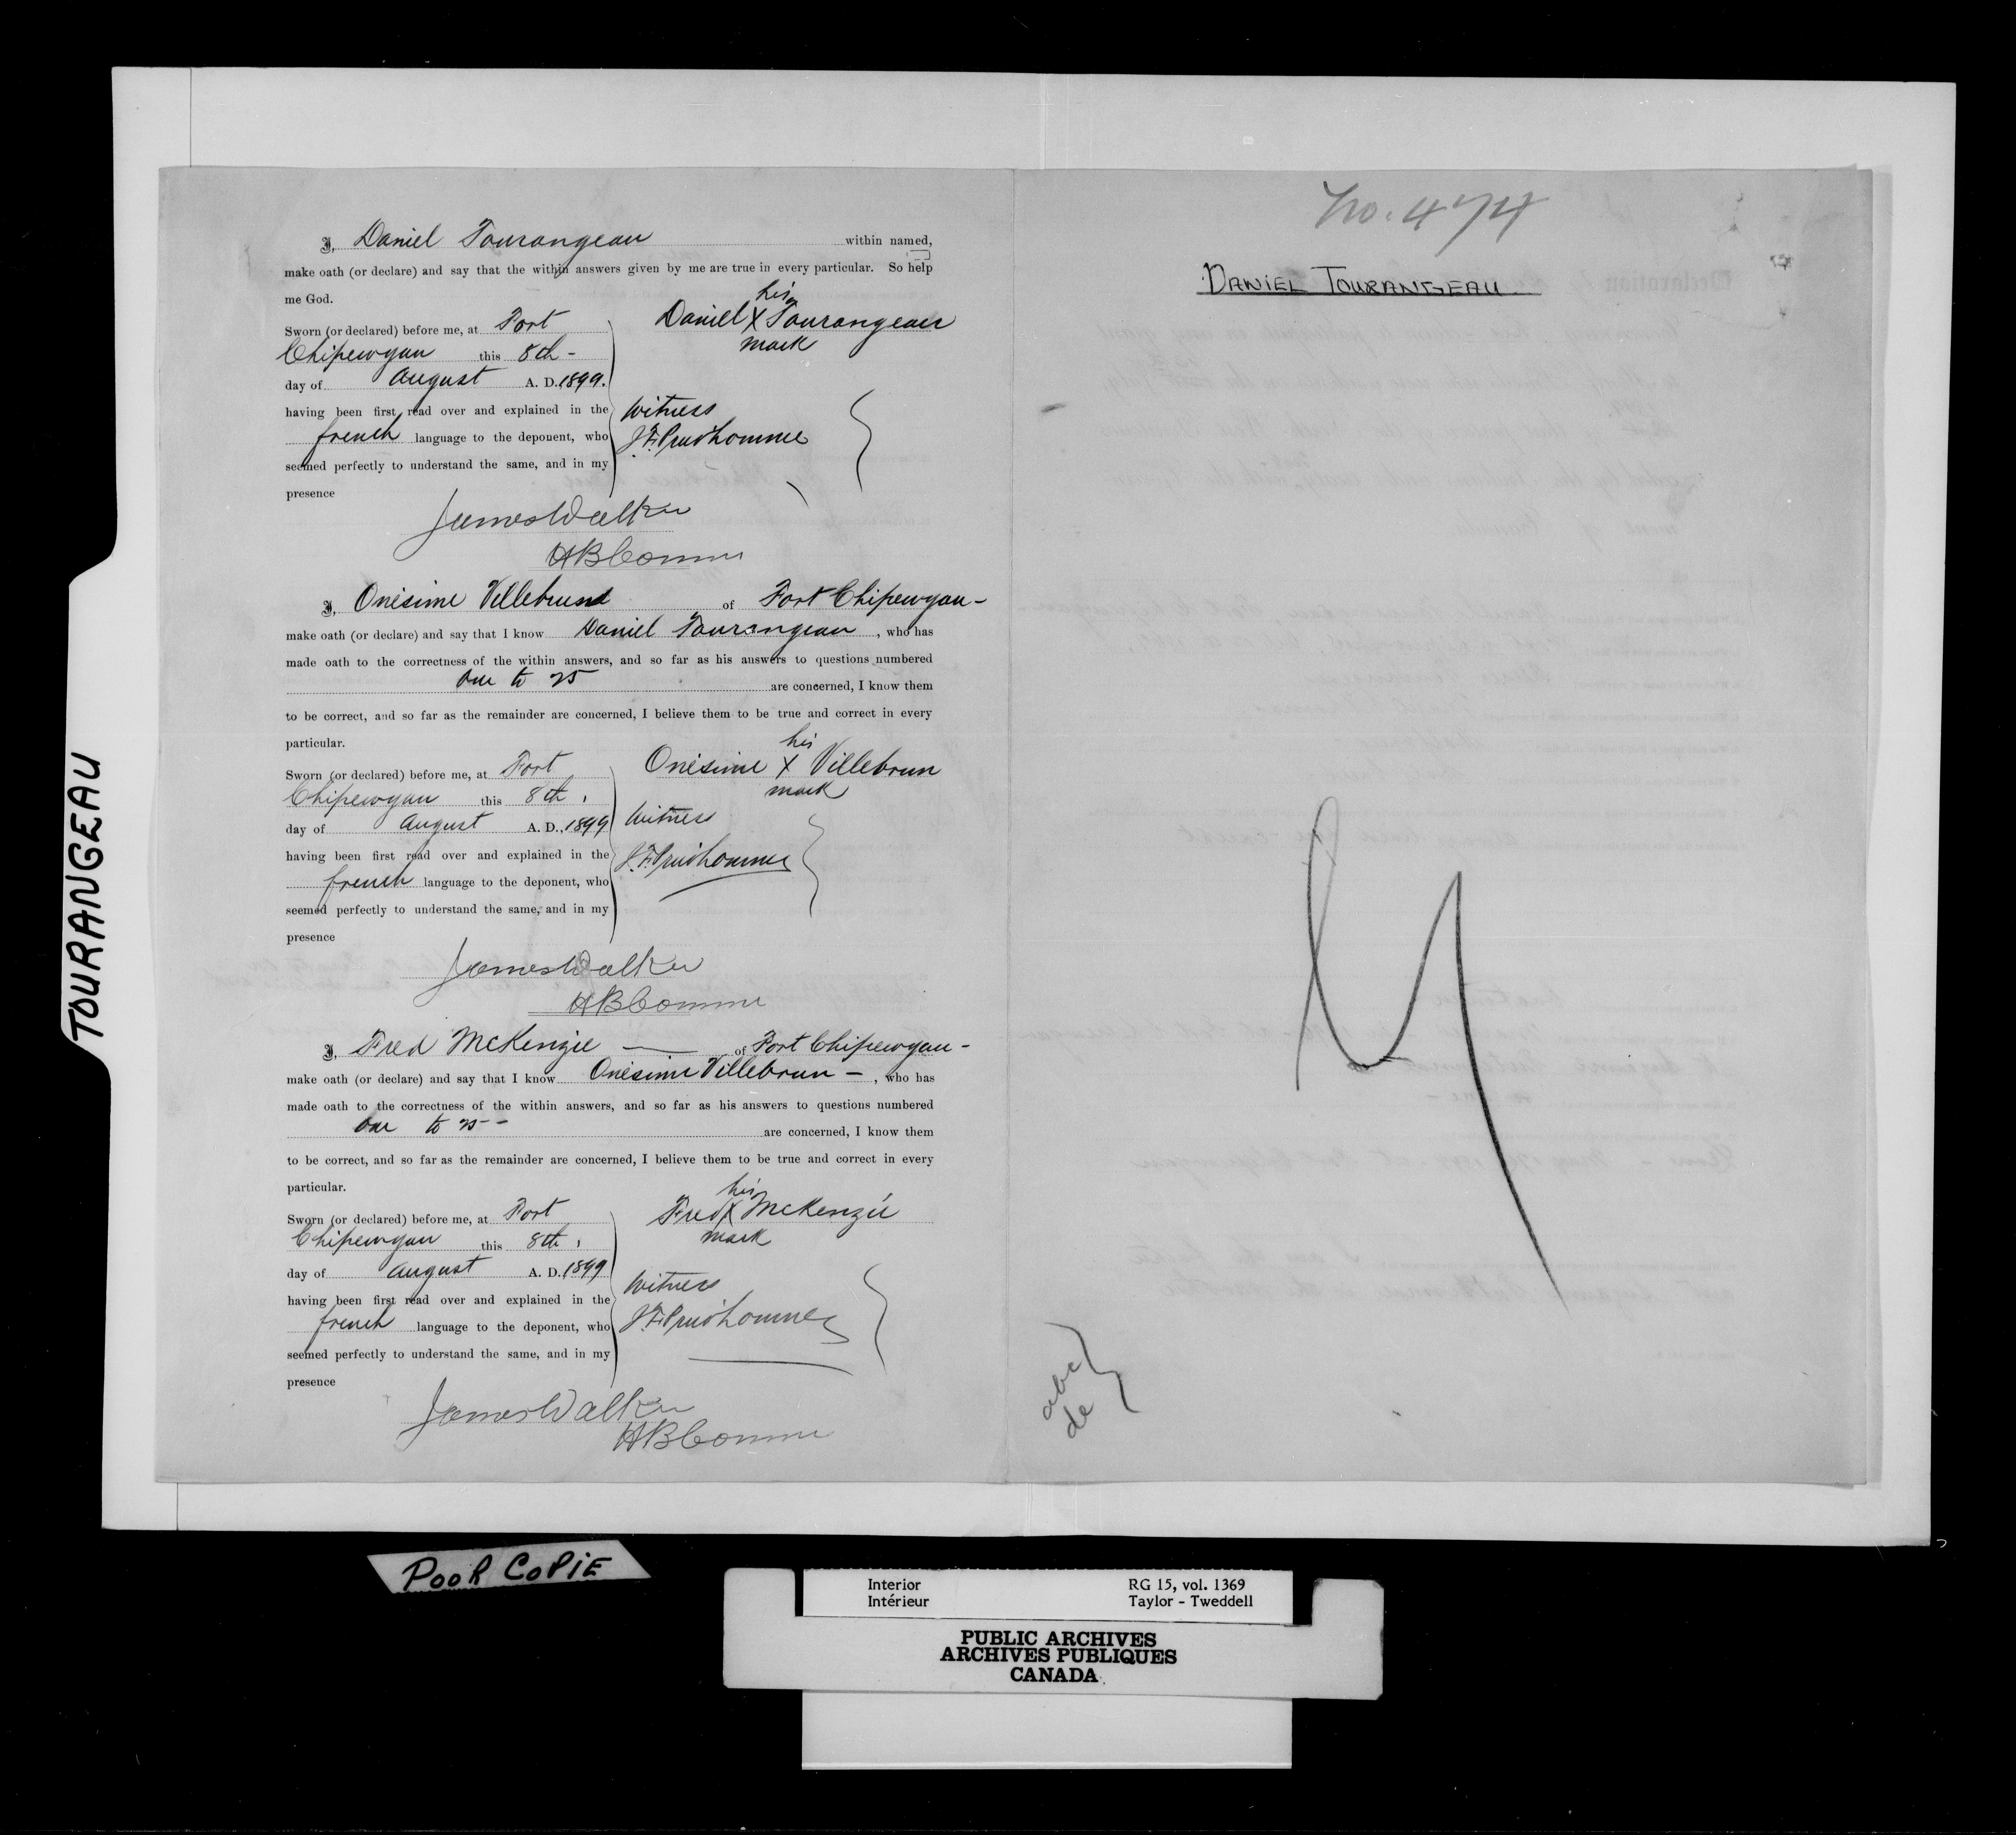 I, Daniel Tourangeau within named,
make oath (or declare) and say that the within answers given by me are true in every particular. So help
me God.
Sworn (or declared) before me, at Fort
Chipewyan this 8th -
day of August A. D. 1899.
having been first read over and explained in the
french language to the deponent, who
seemed perfectly to understand the same, and in my
presence
his
Daniel X Tourangeau
mark
Witness
J.F. Prudhomme
James Walker
HB Comm
I, Onésime Villebrund of Fort Chipewyan -
make oath (or declare) and say that I know Daniel Tourangeau, who has
made oath to the correctness of the within answers, and so far as his answers to questions numbered
One to 25 are concerned, I know them
to be correct, and so far as the remainder are concerned, I believe them to be true and correct in every
particular.
Sworn (or declared) before me, at Fort
Chipewyan this 8th,
day of August A. D., 1899
having been first read over and explained in the
french language to the deponent, who
seemed perfectly to understand the same, and in my
presence
his
Onésime X Villebrun
mark
Witness
J.F. Prudhomme
James Walker
HB Comm
I, Fred McKenzie — of Fort Chipewyan -
make oath (or declare) and say that I know Onésime Villebrun -, who has
made oath to the correctness of the within answers, and so far as his answers to questions numbered
One to 25 - are concerned, I know them
to be correct, and so far as the remainder are concerned, I believe them to be true and correct in every
particular.
Sworn (or declared) before me, at Fort
Chipewyan this 8th,
day of August A. D. 1899
having been first read over and explained in the
french language to the deponent, who
seemed perfectly to understand the same, and in my
presence
his
Fred X McKenzie
mark
Witness
J.F. Prudhomme
James Walker
HB Comm
No. 474
DANIEL TOURANGEAU
abc
de
TOURANGEAU
POOR COPIE
Interior RG 15, vol. 1369
Intérieur Taylor - Tweddell
PUBLIC ARCHIVES
ARCHIVES PUBLIQUES
CANADA